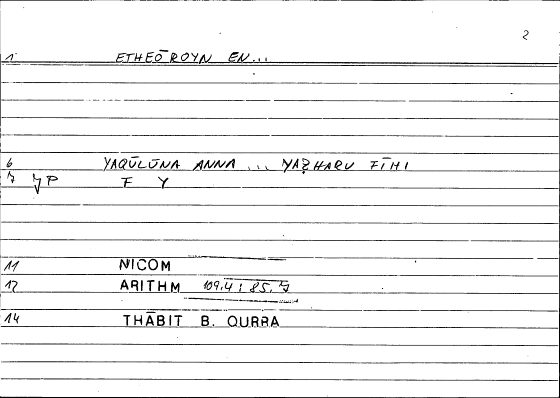 2
1 ETHEŌROYN EN...
6 YAQŪLŪNA ANNA ... YAẒHARU FĪHI
7 F Y
11 NICOM
12 ARITHM 109.4 ; 85.7
14 THĀBIT B. QURRA